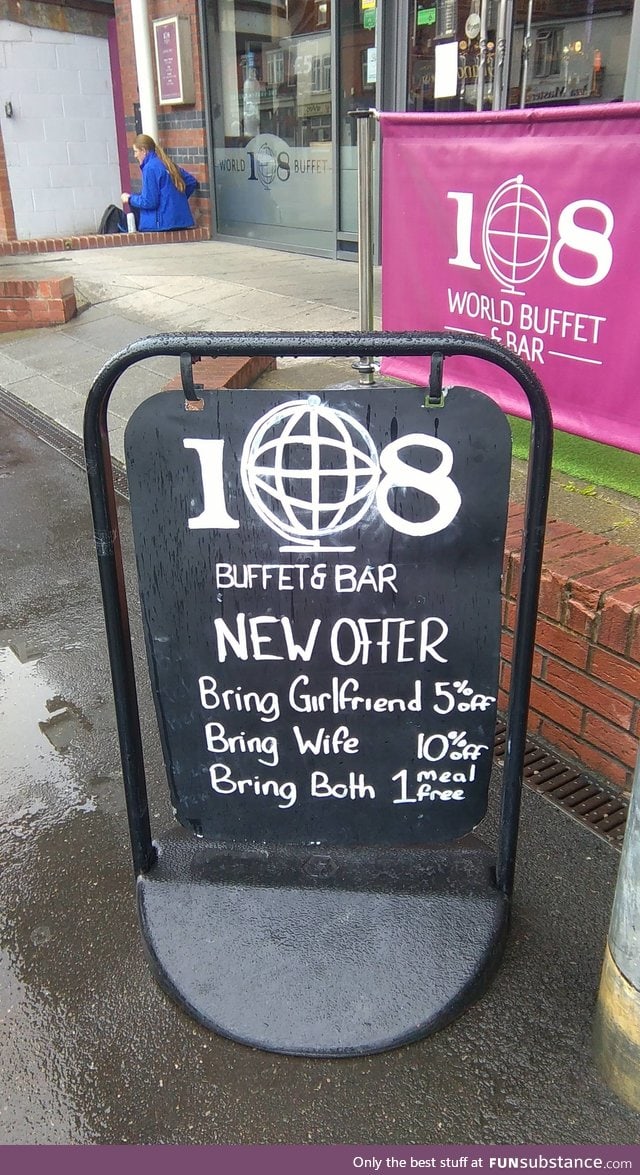 WORLD 108 BUFFET
108
WORLD BUFFET
& BAR
108
BUFFET & BAR
NEW OFFER
Bring Girlfriend 5% off
Bring Wife 10% off
Bring Both 1 meal free
Only the best stuff at FUNsubstance.com